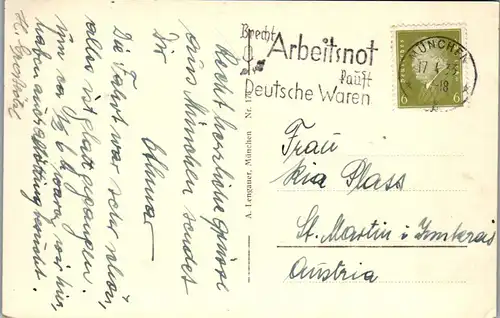 Recht herzliche Grüsse
aus München sendet
Dir
Othmar
Die Fahrt war sehr schön,
alles ist glatt gegangen.
Um ca ½ 6 h waren wir hier,
haben auch
A. Lengauer, München Nr.
Brecht
Arbeitsnot
kauft
Deutsche Waren
MÜNCHEN
17 4 33
-18
6 6
Frau
Ria Plass
St. Martin i.
Austria